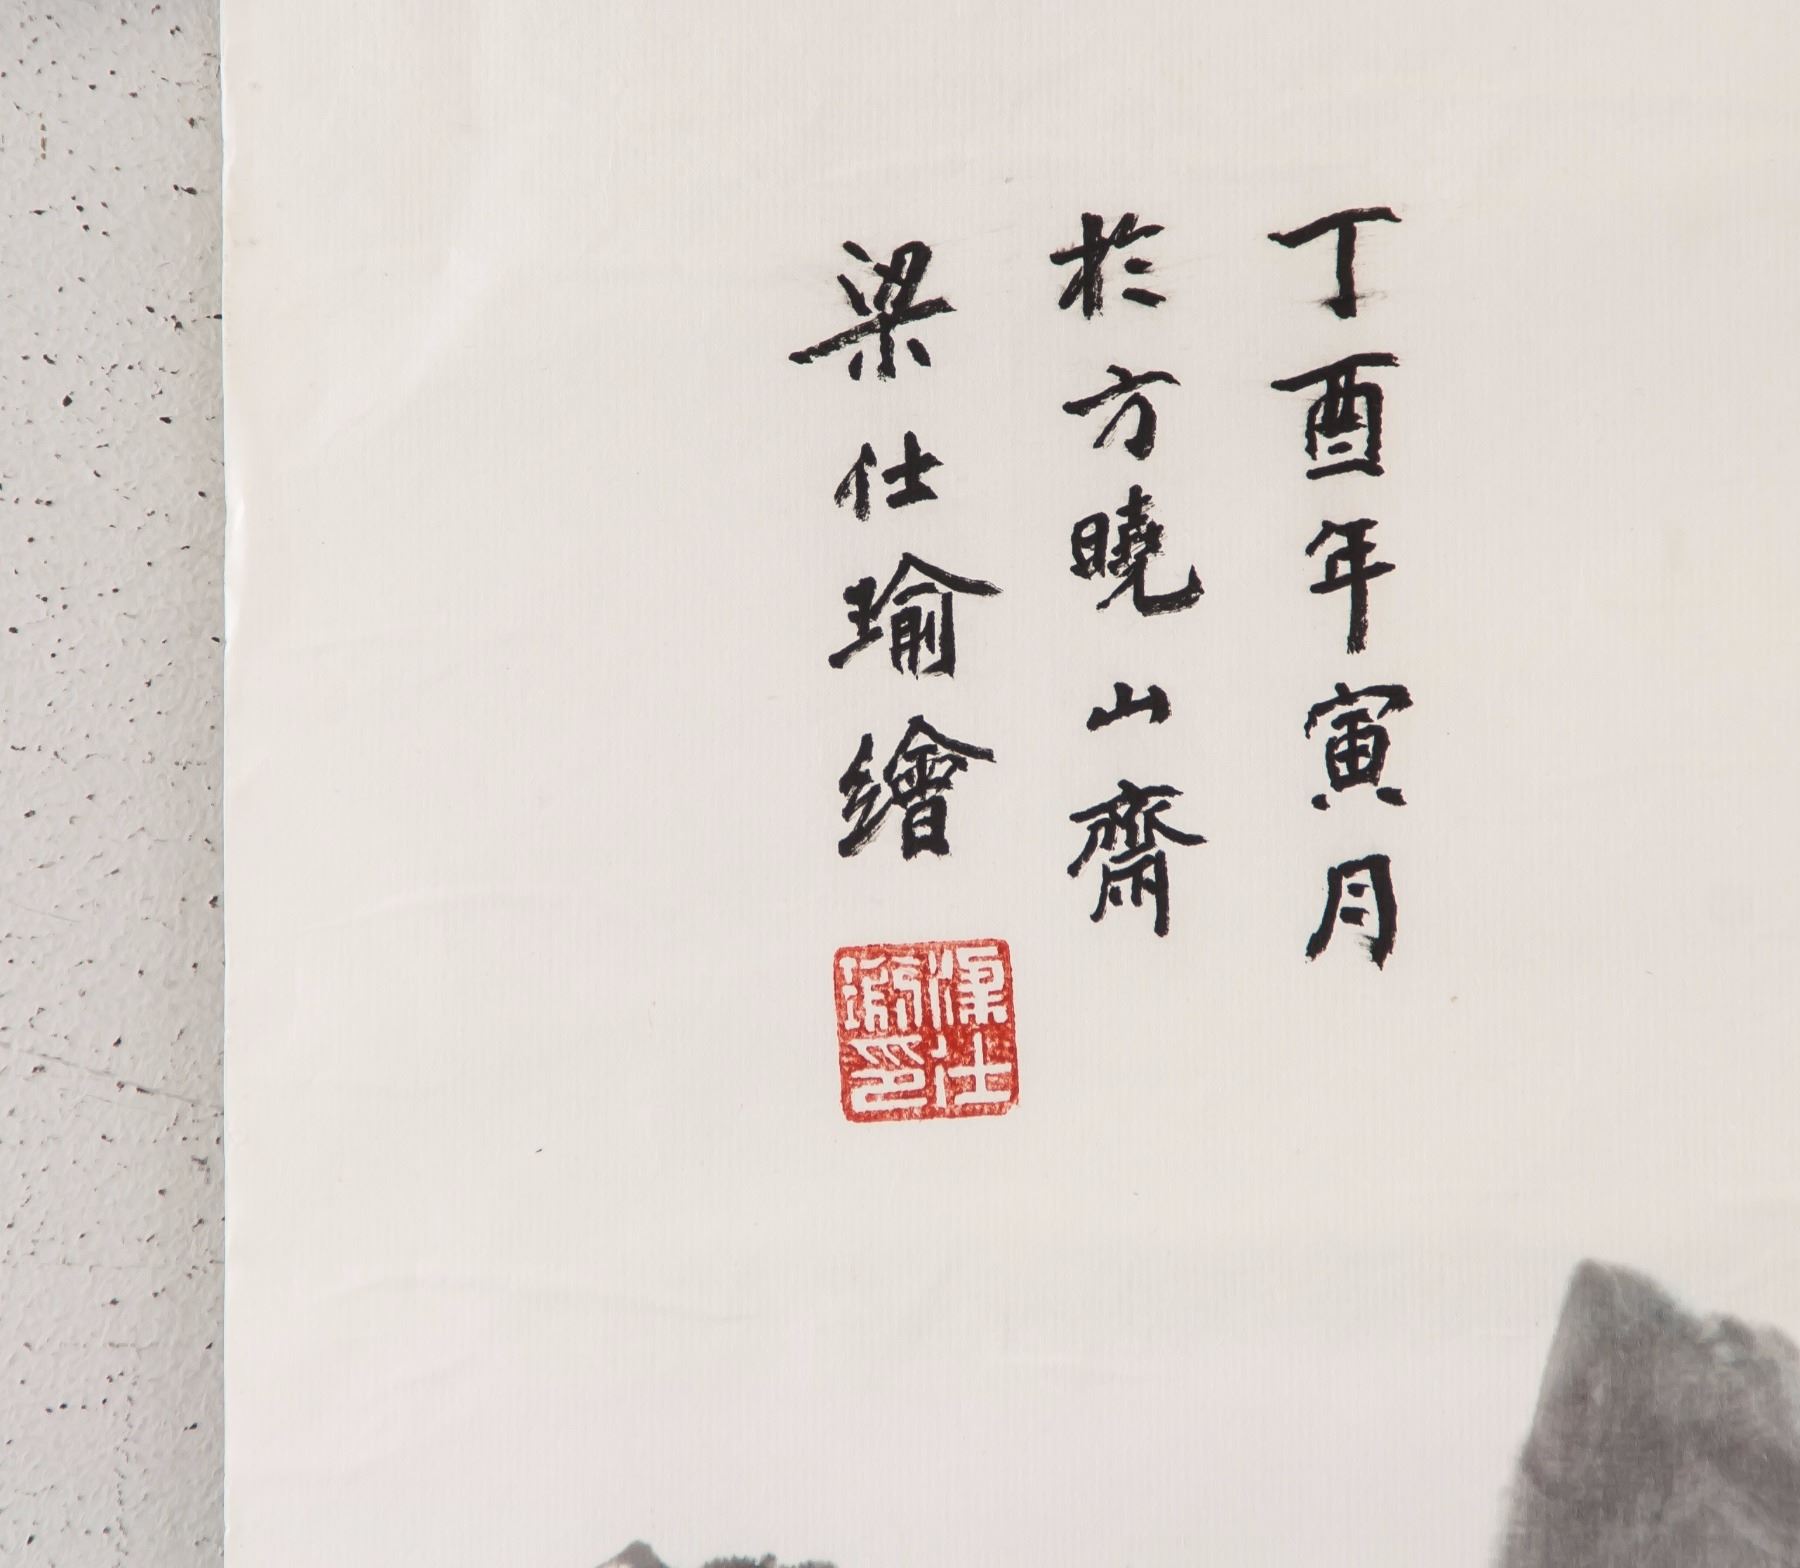 丁酉年寅月
於方曉山齋
梁仕瑜繪
梁仕
瑜印